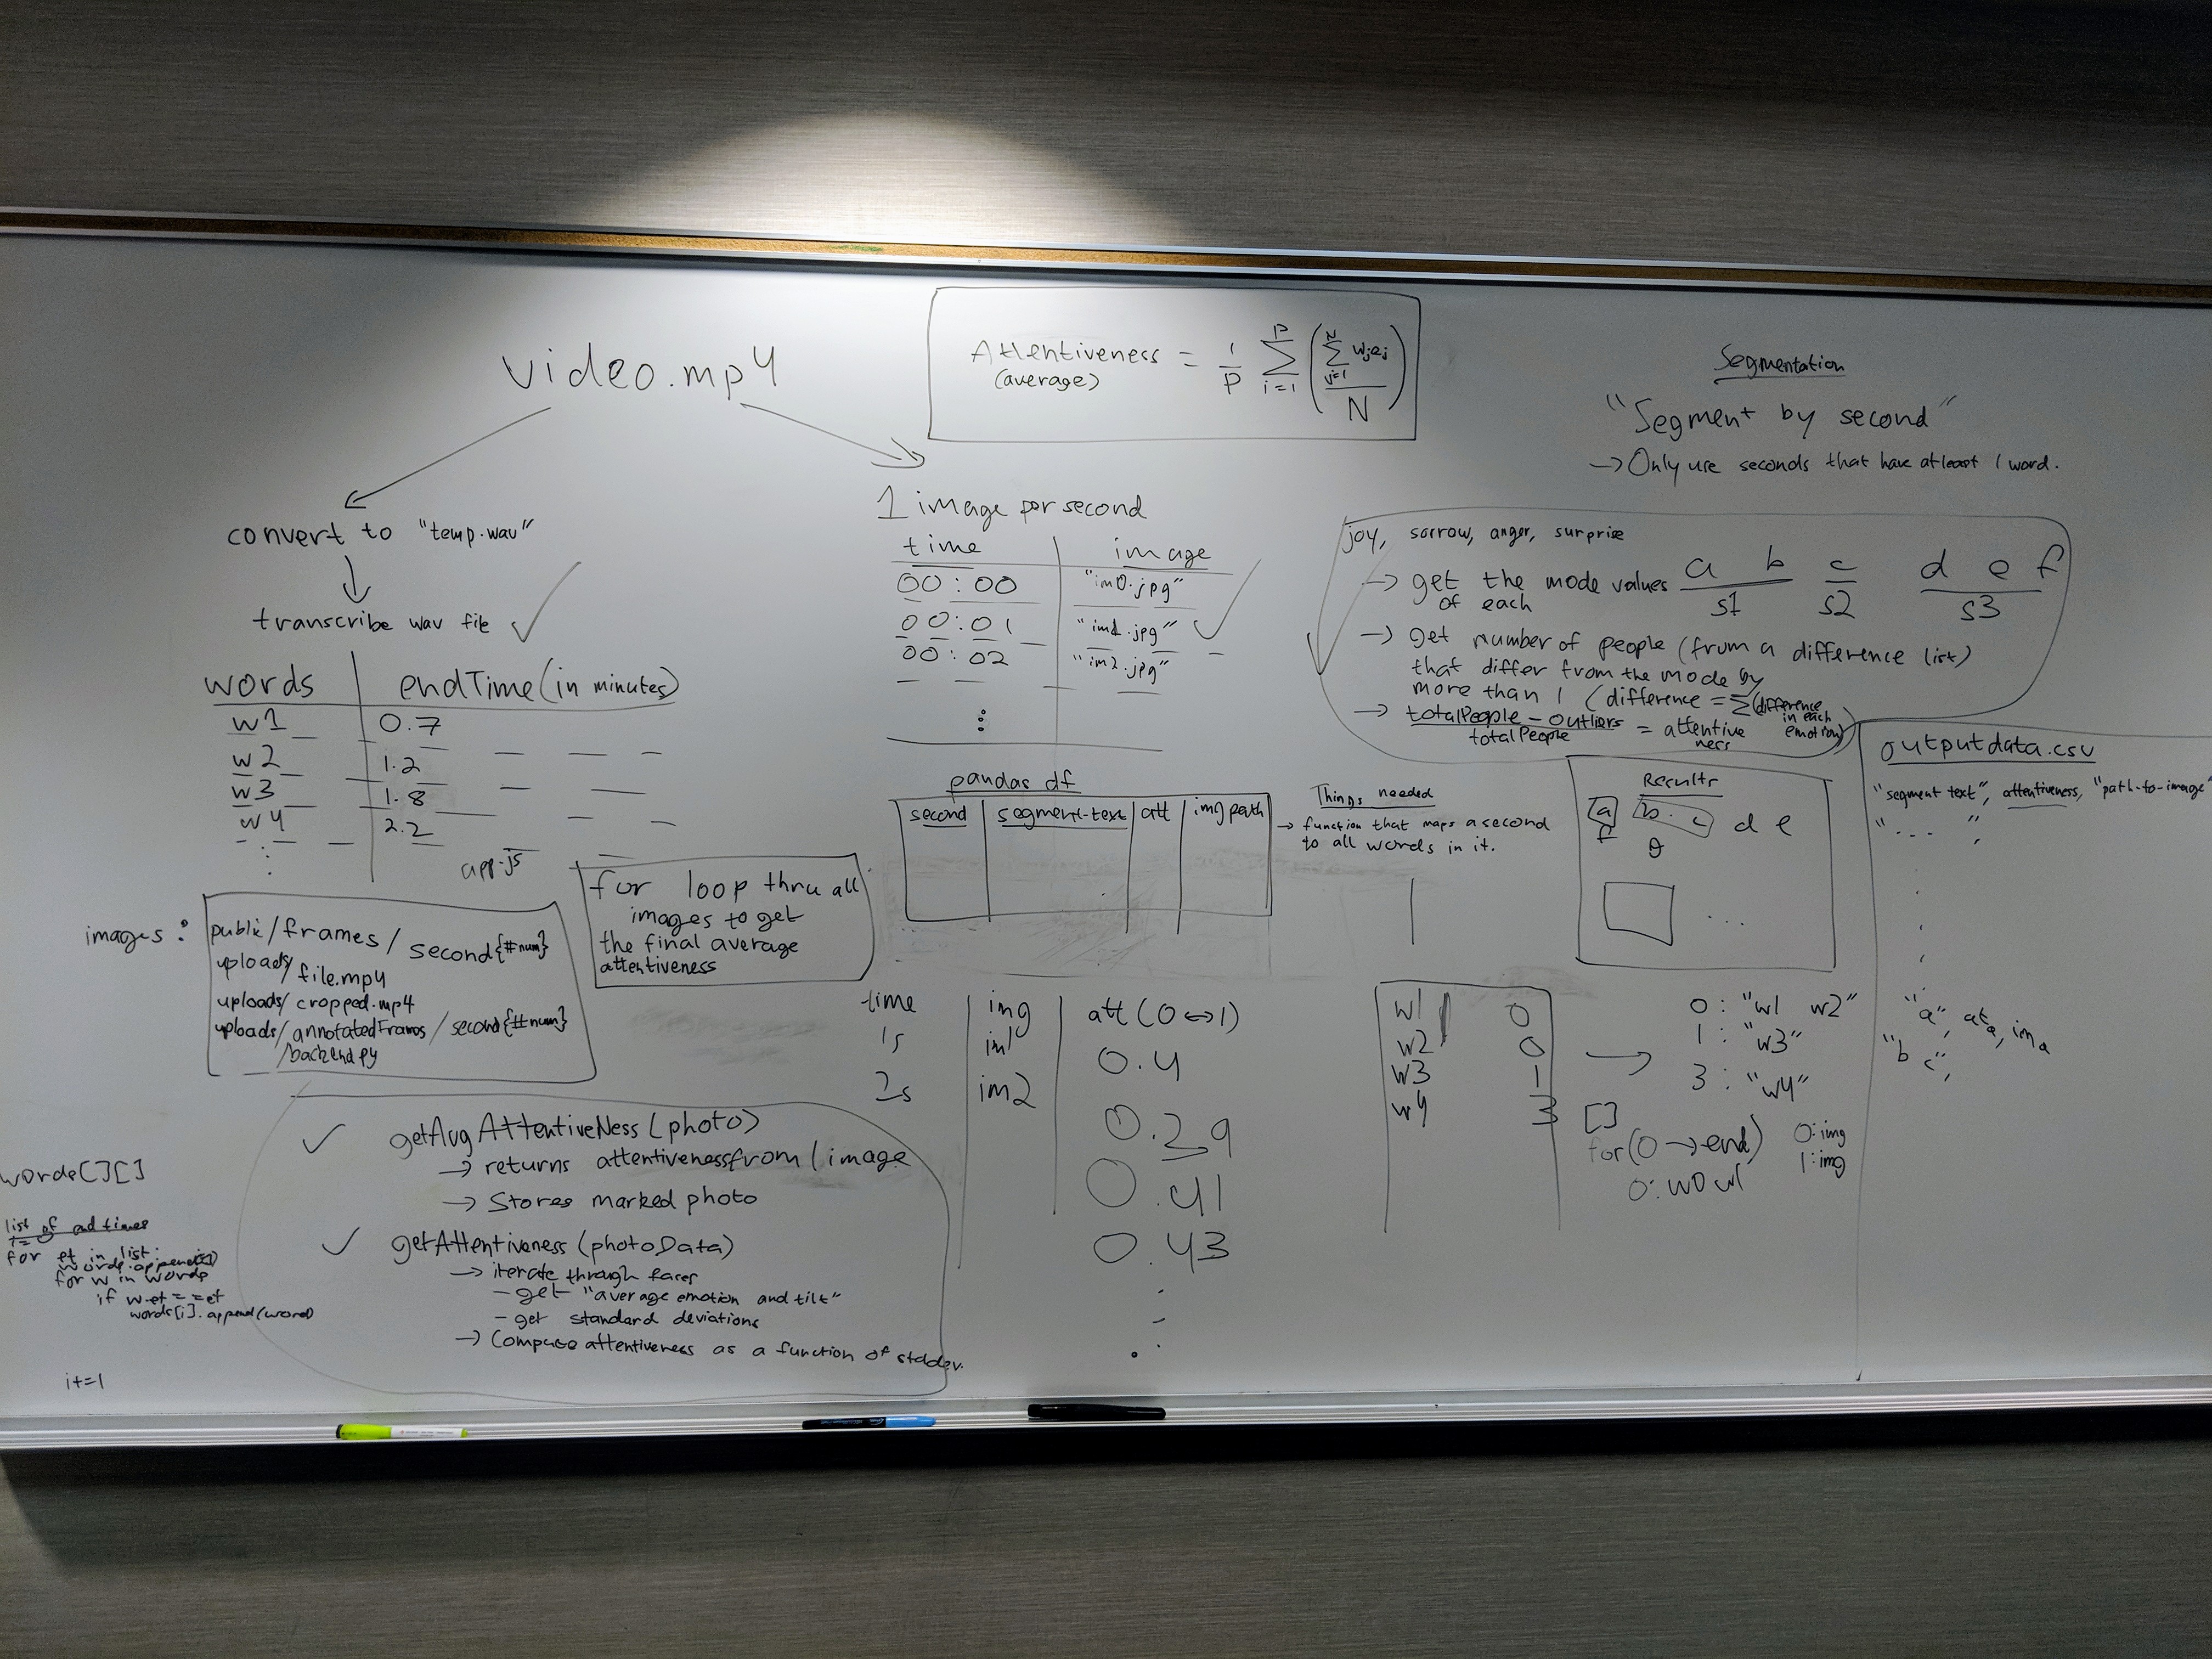 video.mp4
Attentiveness = 1/P Σ i=1 P ( Σ j=1 N wjej / N )
(average)
Segmentation
"Segment by second"
→ Only use seconds that have atleast 1 word.
convert to "temp.wav"
transcribe wav file ✓
words | endTime (in minutes)
w1 | 0.7
w2 | 1.2
w3 | 1.8
w4 | 2.2
1 image per second
time | image
00:00 | "im0.jpg"
00:01 | "im1.jpg"
00:02 | "im2.jpg"
joy, sorrow, anger, surprise
→ get the mode values of each
a b c d e f
s1 s2 s3
→ get number of people (from a difference list)
that differ from the mode by
more than 1 (difference = Σ(difference
in each
emotion)
→ totalPeople - outliers / totalPeople = attentiveness
pandas df
second | segment-text | att | img path
Things needed
→ function that maps a second
to all words in it.
Results
a b. c d e
f
outputdata.csv
"segment text", attentiveness, "path-to-image"
"... ",
app.js
images: public/frames/second{#num}
uploads/file.mp4
uploads/cropped.mp4
uploads/annotatedFrames/second{#num}
/backend.py
for loop thru all
images to get
the final average
attentiveness
time | img | att (0↔1)
1s | im1 | 0.4
2s | im2 | 0.29
0.41
0.43
w1 0
w2 0
w3 1
w4 3
0: "w1 w2"
1: "w3"
3: "w4"
[]
for(0→end)
0: w0 w1
0: img
1: img
"a", at a, im a
"b c",
✓ getAvgAttentiveNess(photo)
→ returns attentivenessfrom 1 image
→ Stores marked photo
✓ getAttentiveness(photoData)
→ iterate through faces
- get "average emotion and tilt"
- get standard deviations
→ Compute attentiveness as a function of stddev.
words[][]
list of end times
for et in list:
for w in words
if w.et == et
words[i].append(word)
i+=1